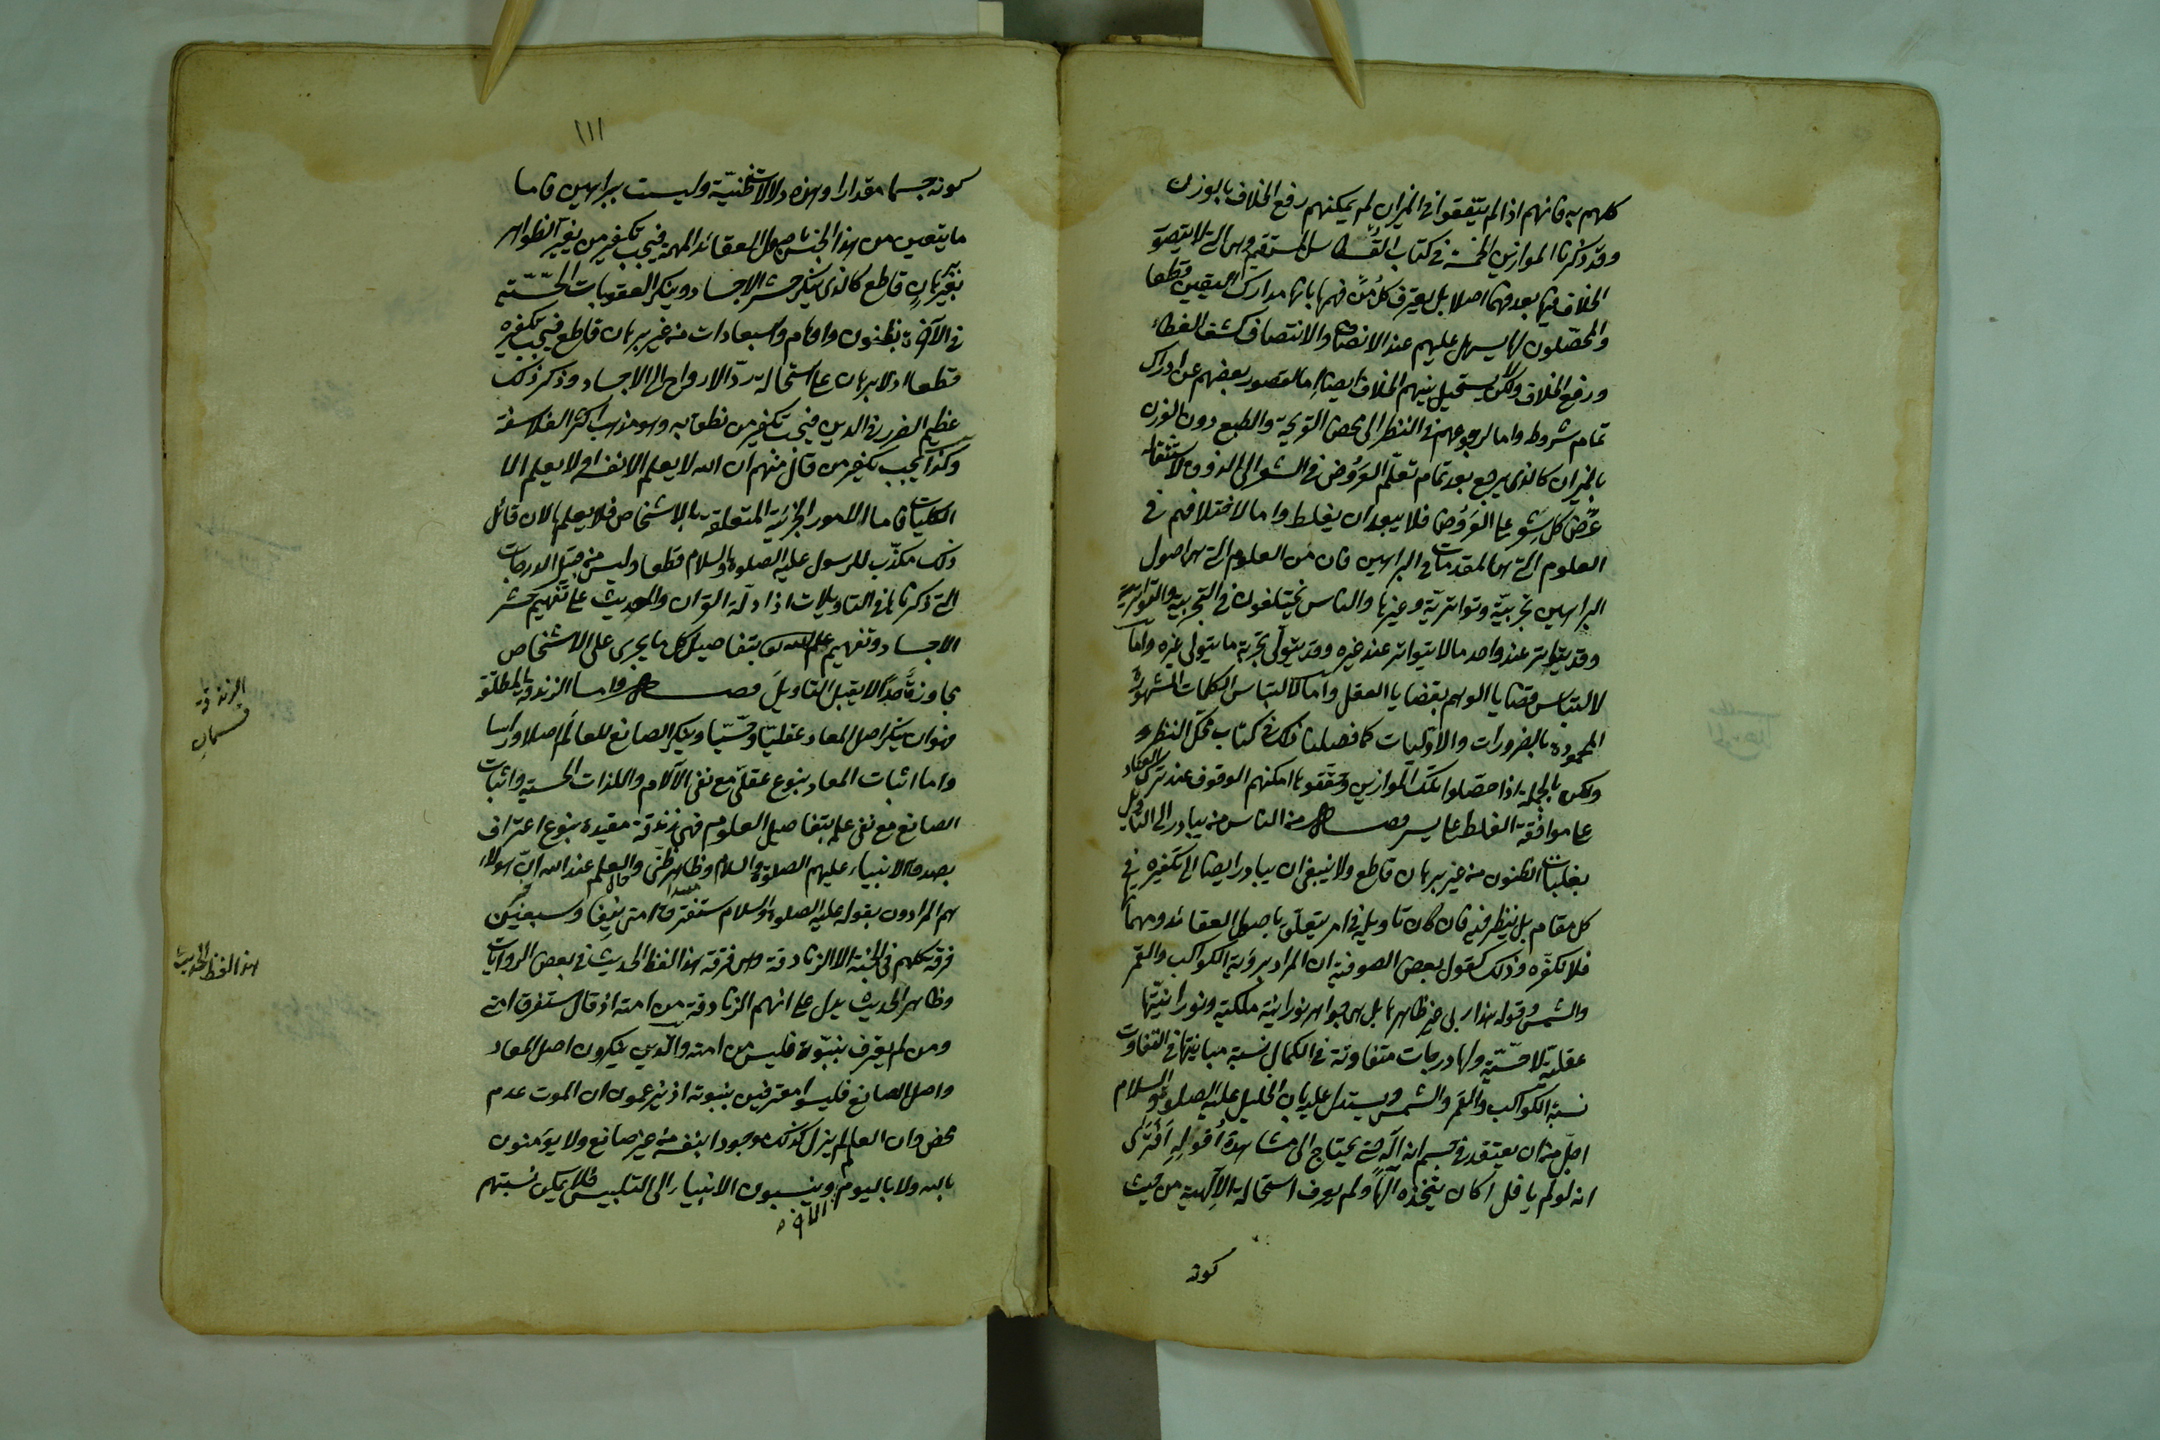 كلهم به فانهم اذا لم يتفقوا في الميزان لم يمكنهم رفع الخلاف بالوزن
وقد ذكرنا الموازين الخمسة في كتاب القسطاس المستقيم وهى التى لا يتصور
الخلاف فيها بعد فهمها اصلا بل يعترف كل من فهمها بانها مدارك اليقين قطعا
والمحصلون لها يسهل عليهم عند الانصاف والانتصاف كشف الغطاء
ورفع الخلاف ولكن لا يستحيل بينهم الخلاف ايضا اما لقصور بعضهم عن ادراك
تمام شروطه واما لرجوعهم في النظر الى محض القريحة والطبع دون الوزن
بالميزان كالذى يرجع بعد تمام تعلم العروض في الشعر الى الذوق لاستثقاله
عرض كل شعر على العروض فلا يبعد ان يغلط واما لاختلافهم في
العلوم التى هى المقدمات في البراهين فان من العلوم التى هى اصول
البراهين تجربية وتواترية وغيرها والناس يختلفون في التجربية والتواترية
وقد يتواتر عند واحد ما لا يتواتر عند غيره وقد يتولى تجربة ما يتولى غيره واما
لالتباس قضايا الوهم بقضايا العقل واما لالتباس الكلمات المشهورة
المحمودة بالضرورات والاوليات كما فصلنا ذلك في كتاب محك النظر
ولكن بالجملة اذا حصلوا تلك الموازين وحققوها امكنهم الوقوف عند ترك العناد
على مواقع الغلط على يسر فصل من الناس من يبادر الى التأويل
بغلبات الظنون من غير برهان قاطع ولا ينبغى ان يبادر ايضا الى تكفيره في
كل مقام بل ينظر فيه فان كان تاويله في امر يتعلق باصول العقائد ومهماتها
فلا نكفره وذلك كقول بعض الصوفية ان المراد برؤية الكواكب والقمر
والشمس وقوله هذا ربى غير ظاهرها بل هى جواهر نورانية ملكية ونورانيتها
عقلية لا حسية ولها درجات متفاوتة في الكمال نسبة مبانيها في التفاوت
نسبة الكواكب والقمر والشمس ويستدل عليه بان الخليل عليه الصلوة والسلام
اجل من ان يعتقد في جسم انه اله حتى يحتاج الى مشاهدة افوله افترى
انه لو لم يافل اكان يتخذه الها ولم يعرف استحالة الالهية من حيث
كونه
١١١
كونه جسما مقدارا وهذه دلالات ظنية وليست ببراهين فاما
ما يتعين من هذا الجنس باصول العقائد المهمة فيجب تكفير من يغير الظواهر
بغير برهان قاطع كالذى ينكر حشر الاجساد وينكر العقوبات الحسية
في الآخرة بظنون واوهام واستبعادات من غير برهان قاطع فيجب تكفيره
قطعا اذ لا برهان على استحالة رد الارواح الى الاجساد وذكر ذلك
عظيم الضرر في الدين فيجب تكفير من نطق به وهو مذهب اكثر الفلاسفة
وكذا يجب تكفير من قال منهم ان الله لا يعلم الا نفسه او لا يعلم الا
الكليات فاما الامور الجزئية المتعلقة بالاشخاص فلا يعلمها لان قائل
ذلك مكذب للرسول عليه الصلوة والسلام قطعا وليس من قبيل الدرجات
التى ذكرناها في التاويلات اذ ادلة القران والحديث على تفهيم حشر
الاجساد وتفهيم علم الله تعالى بتفاصيل كل ما يجرى على الاشخاص
مجاوزة حدا لا يقبل التاويل فصل واما الزندقة المطلقة
فهو ان ينكر اصل المعاد عقليا وحسيا وينكر الصانع للعالم اصلا وراسا
واما اثبات المعاد بنوع عقلى مع نفى الآلام واللذات الحسية واثبات
الصانع مع نفى علمه بتفاصيل العلوم فهى زندقة مقيدة بنوع اعتراف
بصدق الانبياء عليهم الصلوة والسلام وظاهر ظنى والعلم عند الله ان هولاء
هم المرادون بقوله عليه الصلوة والسلام ستفترق امتى نيفا وسبعين
فرقة كلهم في الجنة الا الزنادقة وهى فرقة هذا لفظ الحديث في بعض الروايات
وظاهر الحديث يدل على انهم الزنادقة من امته اذ قال ستفترق امتى
ومن لم يعترف بنبوته فليس من امته والذين ينكرون اصل المعاد
واصل الصانع فليسوا معترفين بنبوته اذ يزعمون ان الموت عدم
محض وان العالم لم يزل كذلك موجودا بنفسه من غير صانع ولا يؤمنون
بالله ولا باليوم الآخر وينسبون الانبياء الى التلبيس فلا يمكن نسبتهم
الزندقة
قسمان
هذا لفظ الحديث